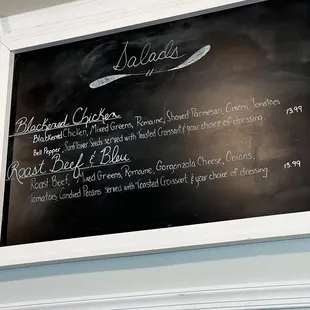 Salads
Blackened Chicken
Blackened Chicken, Mixed Greens, Romaine, Shaved Parmesan, Onion, Tomatoes
Bell Pepper, Sunflower Seeds served with Toasted Croissant & your choice of dressing 13.99
Roast Beef & Bleu
Roast Beef, Mixed Greens, Romaine, Gorgonzola Cheese, Onions,
Tomatoes, Candied Pecans served with Toasted Croissant & your choice of dressing. 13.99